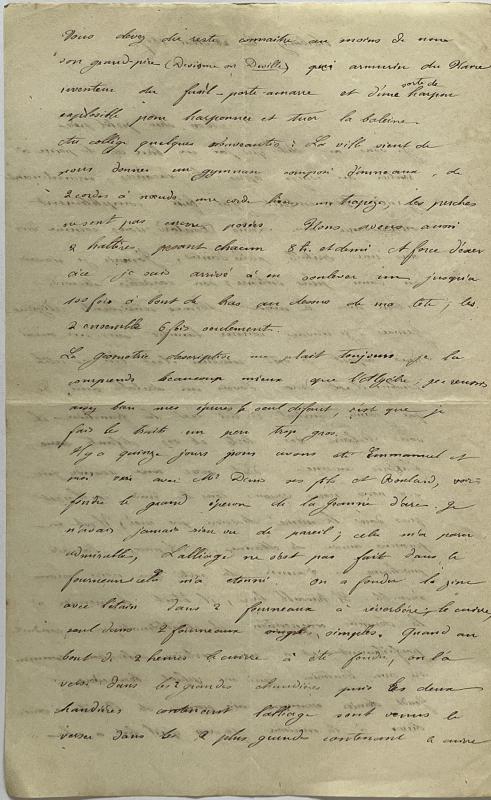 Vous devez du reste connaître au moins de nom
son grand-père (Devisme ou Deville) qui armurier du Havre
inventeur du fusil porte-amarre et d'une sorte de harpon
explosible pour harponner et tuer la baleine.
Au collège quelques nouveautés : La ville vient de
nous donner un gymnase composé d'anneaux, de
2 cordes à nœuds, une corde lisse un trapèze, les perches
ne sont pas encore posées. Nous avons aussi
2 haltères pesant chacun 8 k. et demi. A force d'exer
cice je suis arrivé à en soulever un jusqu'à
100 fois à bout de bras au dessus de ma tête ; les
2 ensemble 6 fois seulement.
La géométrie descriptive me plait toujours je la
comprends beaucoup mieux que l'Algèbre ; je réussis
assez bien mes épures le seul défaut, c'est que je
fais les traits un peu trop gros.
Il y a quinze jours nous avons été Emmanuel et
moi avec Mr Denis ses fils et Roulard, voir
fondre le grand éperon de la Jeanne d'arc. Je
n'avais jamais rien vu de pareil ; cela m'a paru
admirable, L'alliage ne s'est pas fait dans le
fourneau cela m'a étonné. on a fondu le zinc
avec l'étain dans 2 fourneaux à réverbère, le cuivre
seul dans 2 fourneaux simples. Quand au
bout de 2 heures le cuivre à été fondu, on l'a
versé dans les 2 grandes chaudières puis les deux
chaudières contenant l'alliage sont venus le
verser dans les 2 plus grandes contenant le cuivre